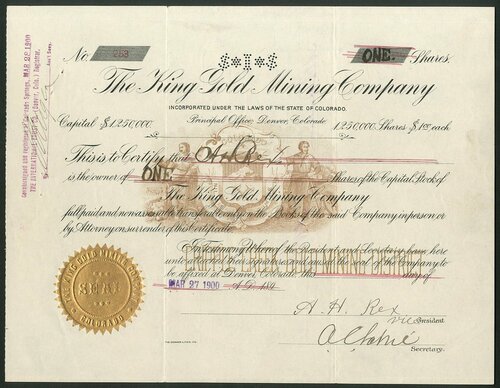 No. 253 $•1•$ ONE. Shares.
The King Gold Mining Company
INCORPORATED UNDER THE LAWS OF THE STATE OF COLORADO.
Capital $1,250,000. Principal Office, Denver, Colorado. 1,250,000 Shares $1.00 each
This is to Certify that
is the owner of ONE Shares of the Capital Stock of
The King Gold Mining Company
full paid and non assessable transferable only on the Books of the said Company in person or
by Attorney on surrender of this Certificate.
In Testimony Whereof the President and Secretary have here
unto affixed their signatures and caused the seal of the Company to
be affixed at Denver, Colorado, this day of
MAR 27 1900 A.D. 189
A. H. Rex
Vice President
Secretary.
THE KING GOLD MINING COMPANY
SEAL
COLORADO
Countersigned and registered at Colorado Springs, MAR 28 1900
THE INTERNATIONAL TRUST CO. (of Denver, Colo.) Registrar,